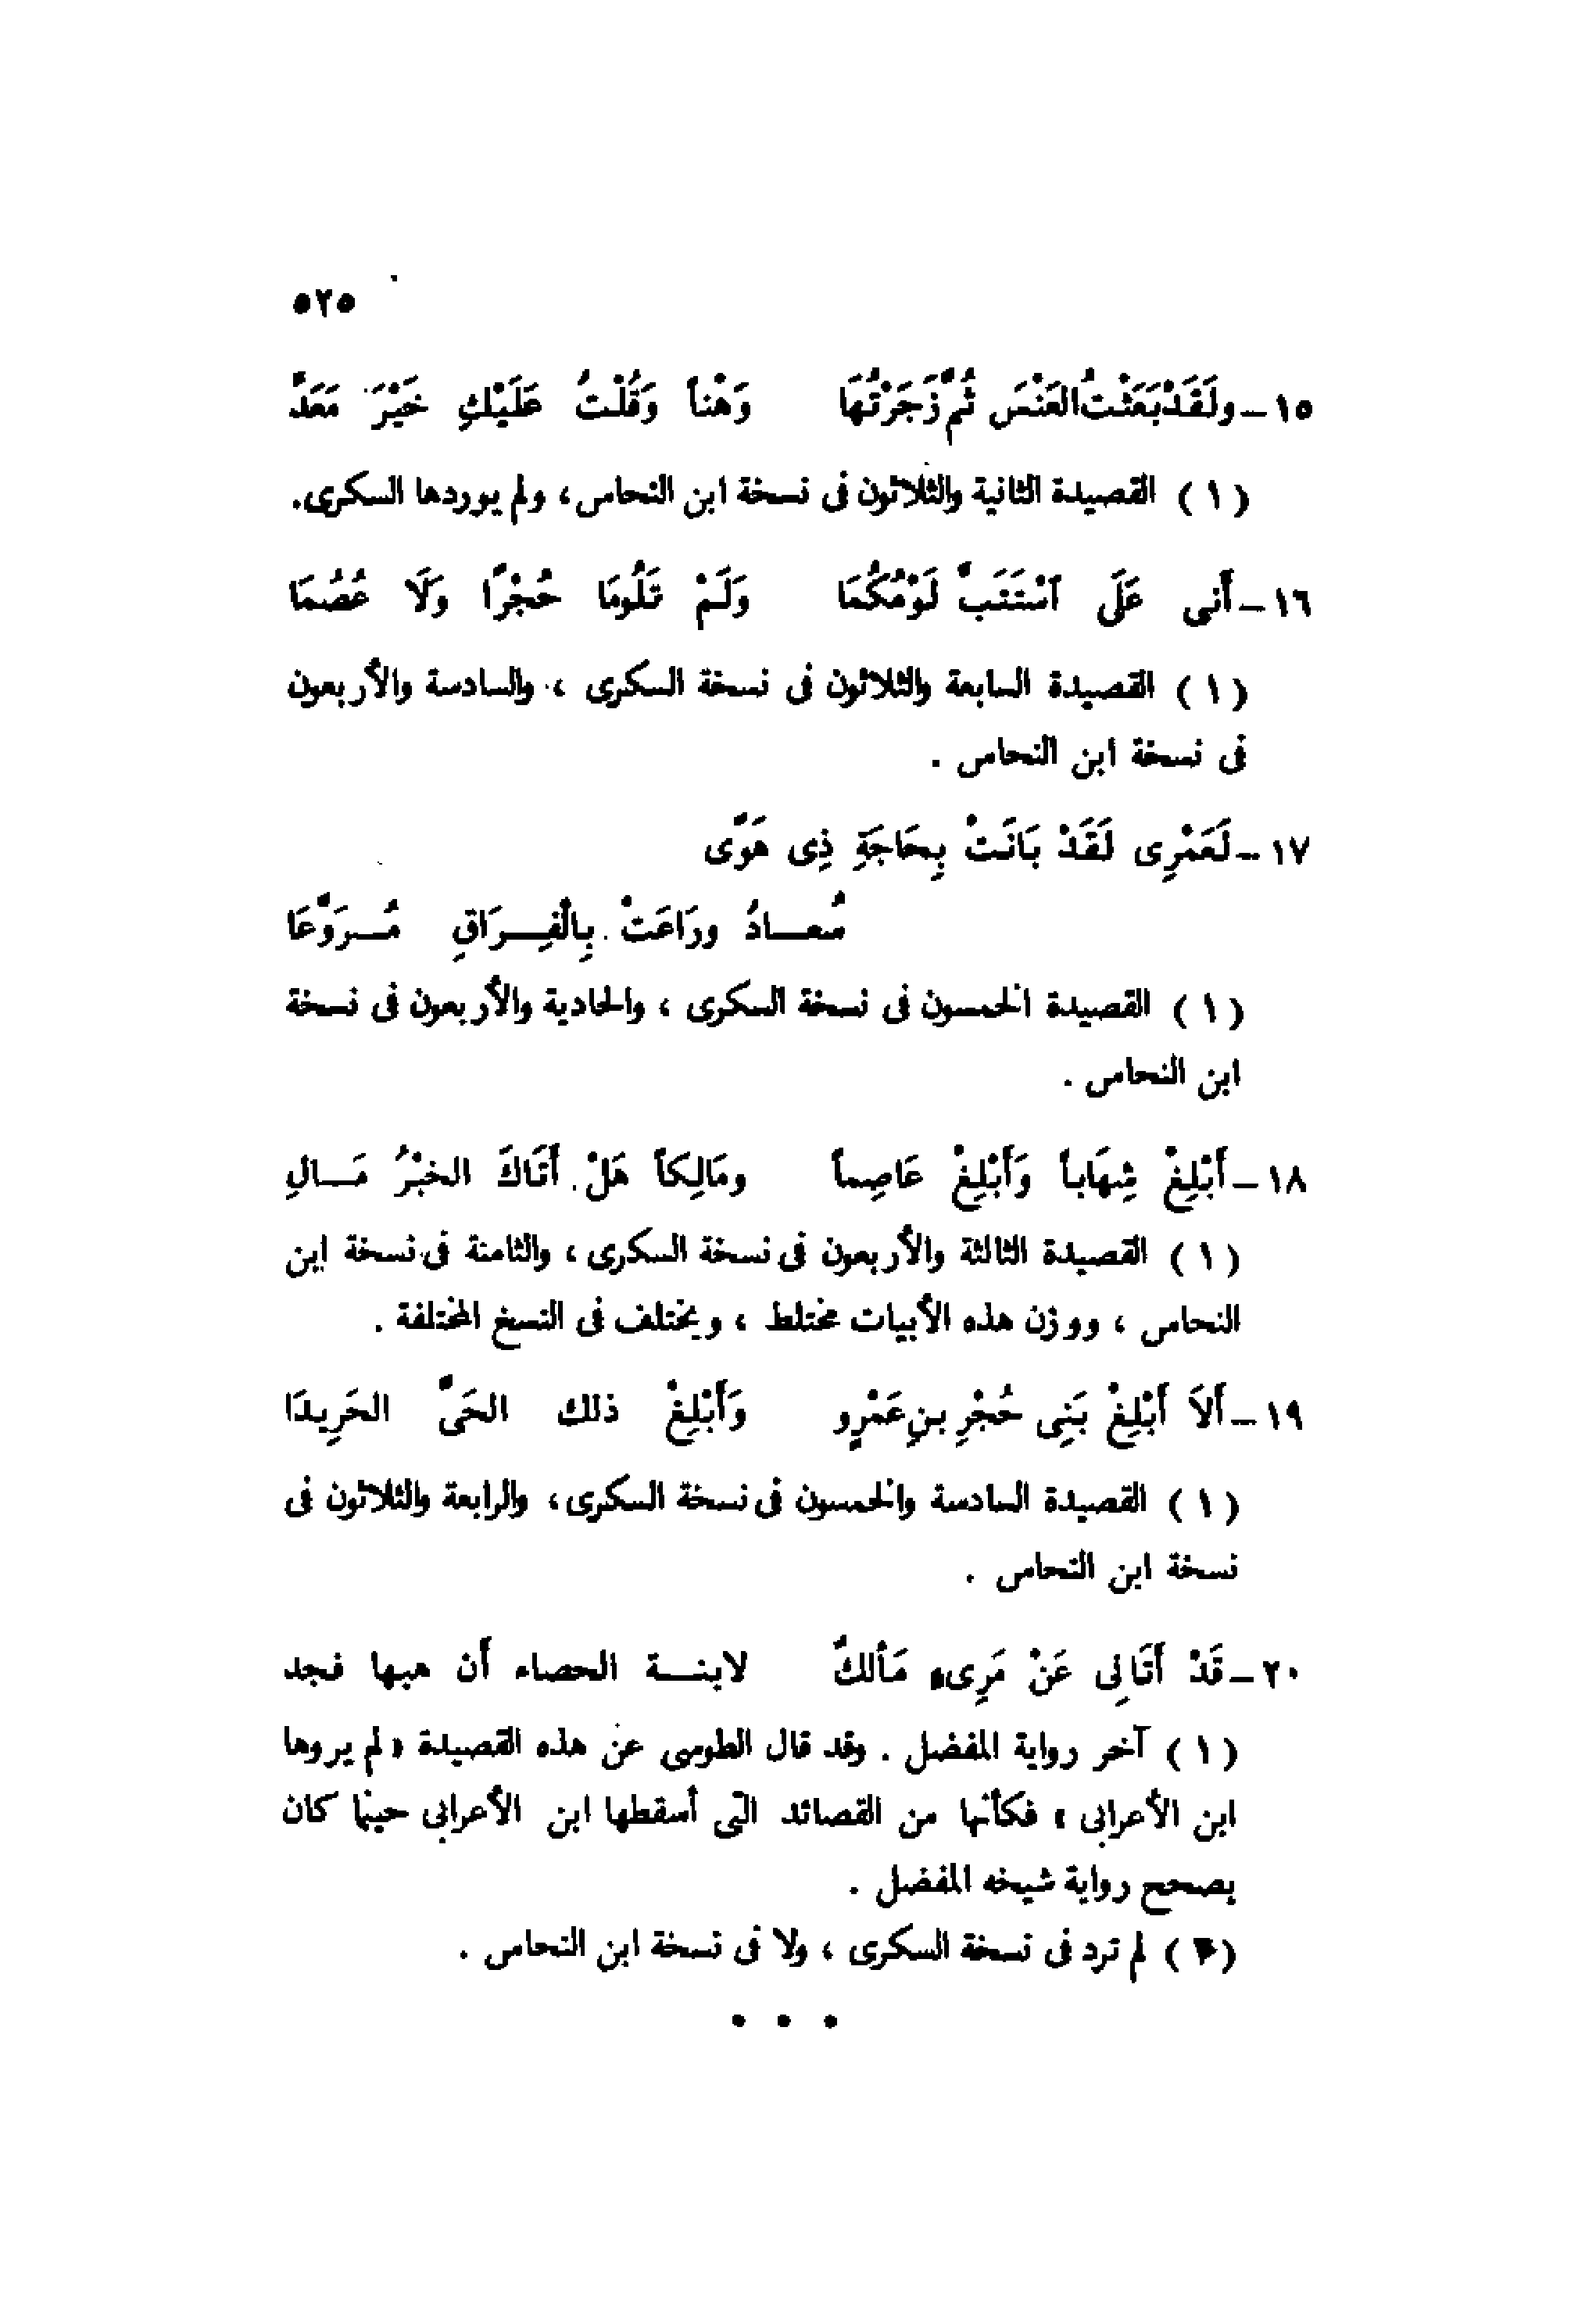 ٥٢٥
١٥ - ولَقَدْ بَعَثْتُ العَنْسَ ثُمَّ زَجَرْتُهَا وَهْناً وَقُلْتُ عَلَيْكِ خَيْرَ مَعَدِّ
(١) القصيدة الثانية والثلاثون فى نسخة ابن النحاس، ولم يوردها السكرى.
١٦ - أَنى عَلَى ٱسْتَتَبَّ لَوْمُكُمَا وَلَمْ تَلُومَا حُجْرًا وَلَا عُصُمَا
(١) القصيدة السابعة والثلاثون فى نسخة السكرى ، والسادسة والأربعون
فى نسخة ابن النحاس .
١٧ - لَعَمْرِى لَقَدْ بَانَتْ بِحَاجَةِ ذِى هَوًى
سُعـادُ ورَاعَتْ بِالْفِـرَاقِ مُـرَوَّعَا
(١) القصيدة الخمسون فى نسخة السكرى ، والحادية والأربعون فى نسخة
ابن النحاس .
١٨ - أَبْلِغْ شِهَاباً وَأَبْلِغْ عَاصِماً ومَالِكاً هَلْ أَتَاكَ الخبْرُ مَـالِ
(١) القصيدة الثالثة والأربعون فى نسخة السكرى ، والثامنة فى نسخة ابن
النحاس ، ووزن هذه الأبيات مختلط ، ويختلف فى النسخ المختلفة .
١٩ - أَلاَ أَبْلِغْ بَنِى حُجْرِ بنِ عَمْرٍو وَأَبْلِغْ ذلك الحَىَّ الحَرِيدَا
(١) القصيدة السادسة والخمسون فى نسخة السكرى، والرابعة والثلاثون فى
نسخة ابن النحاس .
٢٠ - قَدْ أَتَانِى عَنْ مَرِىء مَألكٌ لابنـة الحصاء أَن هبها فجد
(١) آخر رواية المفضل . وقد قال الطوسى عن هذه القصيدة « لم يروها
ابن الأعرابى » فكأنها من القصائد التى أسقطها ابن الأعرابى حينما كان
يصحح رواية شيخه المفضل .
(٢) لم ترد فى نسخة السكرى ، ولا فى نسخة ابن النحاس .
• • •